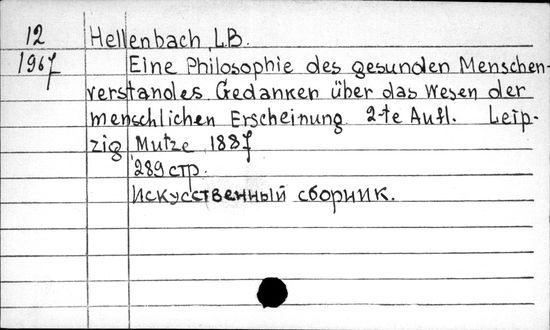 12 Hellenbach, L.B.
1967 Eine Philosophie des gesunden Menschen-
verstandes Gedanken über das Wesen der
menschlichen Erscheinung 2-te Aufl. Leip-
zig Mutze 1887
289 стр.
Искусственный сборник.